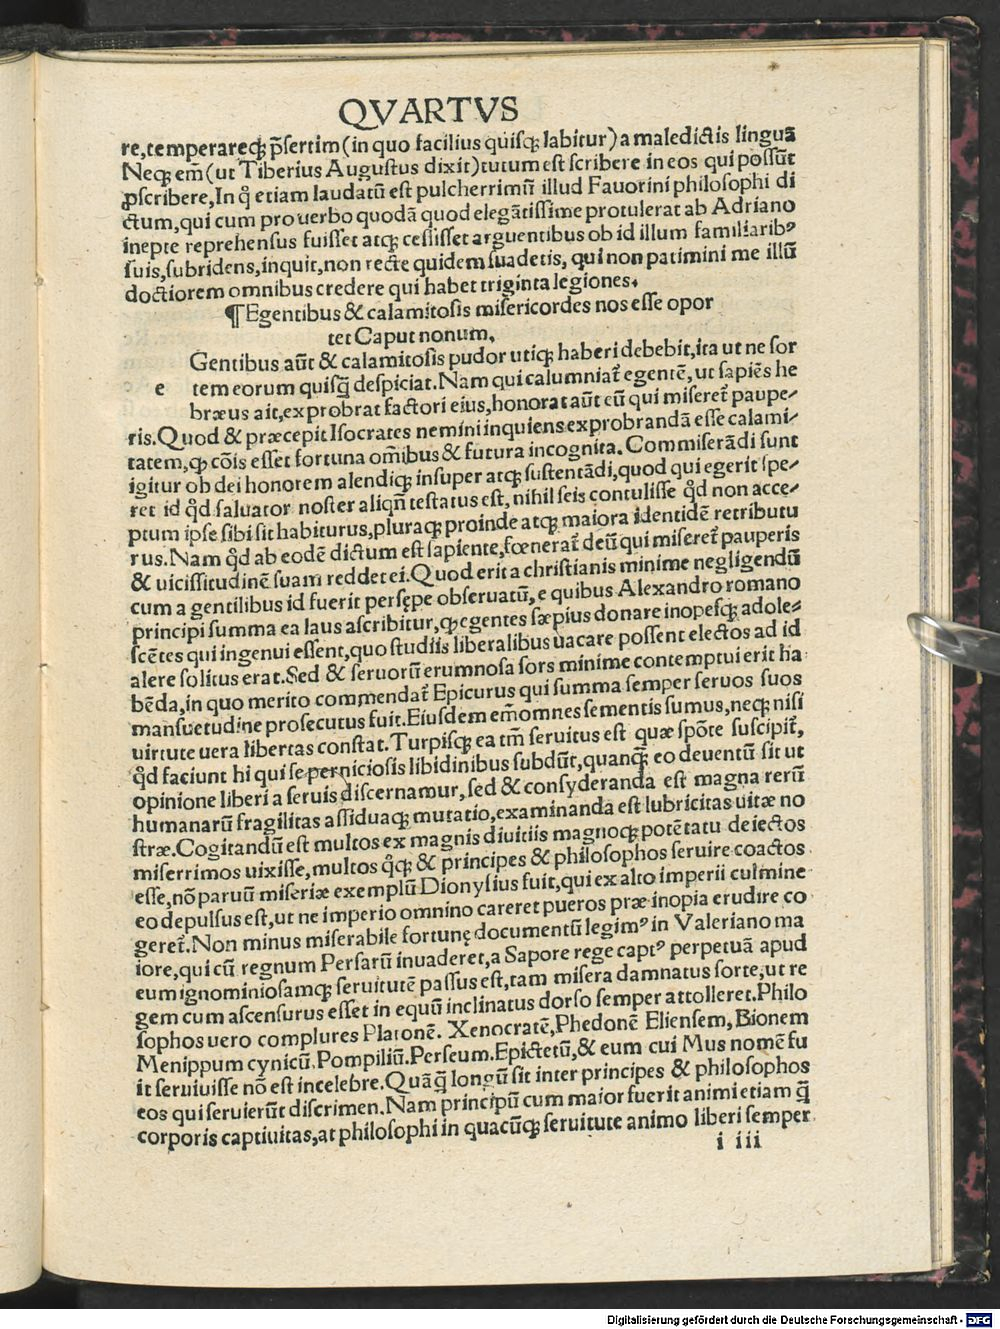 QVARTVS
re,temperareqꝫ p̃sertim(in quo facilius quisqꝫ labitur)a maledictis linguā
Neqꝫ em̃(ut Tiberius Augustus dixit)tutum est scribere in eos qui possūt
ꝓscribere,In q̊ etiam laudatū est pulcherrimū illud Fauorini philosophi di
ctum,qui cum pro uerbo quodā quod elegātissime protulerat ab Adriano
inepte reprehensus fuisset atqꝫ cessisset arguentibus ob id illum familiaribꝰ
suis,subridens,inquit,non recte quidem suadetis, qui non patimini me illū
doctiorem omnibus credere qui habet triginta legiones.
¶Egentibus & calamitosis misericordes nos esse opor
tet Caput nonum.
Gentibus aūt & calamitosis pudor utiqꝫ haberi debebit,ita ut ne sor
e tem eorum quisq̃ despiciat.Nam qui calumniat᷑ egentē,ut sapiēs he
bræus ait,exprobrat factori eius,honorat aūt eū qui miseret᷑ paupe⸗
ris.Quod & præcepit Isocrates nemini inquiens exprobrandā esse calami⸗
tatem,ꝙ cōis esset fortuna om̃ibus & futura incognita. Commiserādi sunt
igitur ob dei honorem alendiqꝫ insuper atqꝫ sustentādi,quod qui egerit spe⸗
ret id q̊d saluator noster aliqn̄ testatus est, nihil seis contulisse q̊d non acce⸗
ptum ipse sibi sit habiturus,pluraqꝫ proinde atqꝫ maiora identidē retributu
rus.Nam q̊d ab eodē dictum est sapiente,fœnerat᷑ deū qui miseret᷑ pauperis
& uicissitudinē suam reddet ei.Quod erit a christianis minime negligendū
cum a gentilibus id fuerit persępe obseruatū,e quibus Alexandro romano
principi summa ea laus ascribitur,ꝙ egentes sæpius donare inopesqꝫ adole⸗
scētes qui ingenui essent,quo studiis liberalibus uacare possent electos ad id
alere solitus erat.Sed & seruorū erumnosa sors minime contemptui erit ha
bēda,in quo merito commendat᷑ Epicurus qui summa semper seruos suos
mansuetudine prosecutus fuit.Eiusdem em̃ omnes sementis sumus,neqꝫ nisi
uirtute uera libertas constat.Turpisqꝫ ea tm̄ seruitus est quæ spōte suscipit᷑,
q̊d faciunt hi qui se perniciosis libidinibus subdūt,quanqꝫ eo deuentū sit ut
opinione liberi a seruis discernamur,sed & consyderanda est magna rerū
humanarū fragilitas assiduaqꝫ mutatio,examinanda est lubricitas uitæ no
stræ.Cogitandū est multos ex magnis diuitiis magnoqꝫ potētatu deiectos
miserrimos uixisse,multos q̊qꝫ & principes & philosophos seruire coactos
esse,nō paruū miseriæ exemplū Dionysius fuit,qui ex alto imperii culmine
eo depulsus est,ut ne imperio omnino careret pueros præ inopia erudire co
geret᷑.Non minus miserabile fortunę documentū legimꝰ in Valeriano ma
iore,qui cū regnum Persarū inuaderet,a Sapore rege captꝰ perpetuā apud
eum ignominiosamqꝫ seruitutē passus est,tam misera damnatus sorte,ut re
gem cum ascensurus esset in equū inclinatus dorso semper attolleret.Philo
sophos uero complures Platonē. Xenocratē,Phedonē Eliensem,Bionem
Menippum cynicū.Pompiliū.Perseum.Epictetū,& eum cui Mus nomē fu
it seruiuisse nō est incelebre.Quāq̃ longū sit inter principes & philosophos
eos qui seruierūt discrimen.Nam principū cum maior fuerit animi etiam q̃
corporis captiuitas,at philosophi in quacūqꝫ seruitute animo liberi semper
i iii
Digitalisierung gefördert durch die Deutsche Forschungsgemeinschaft - DFG